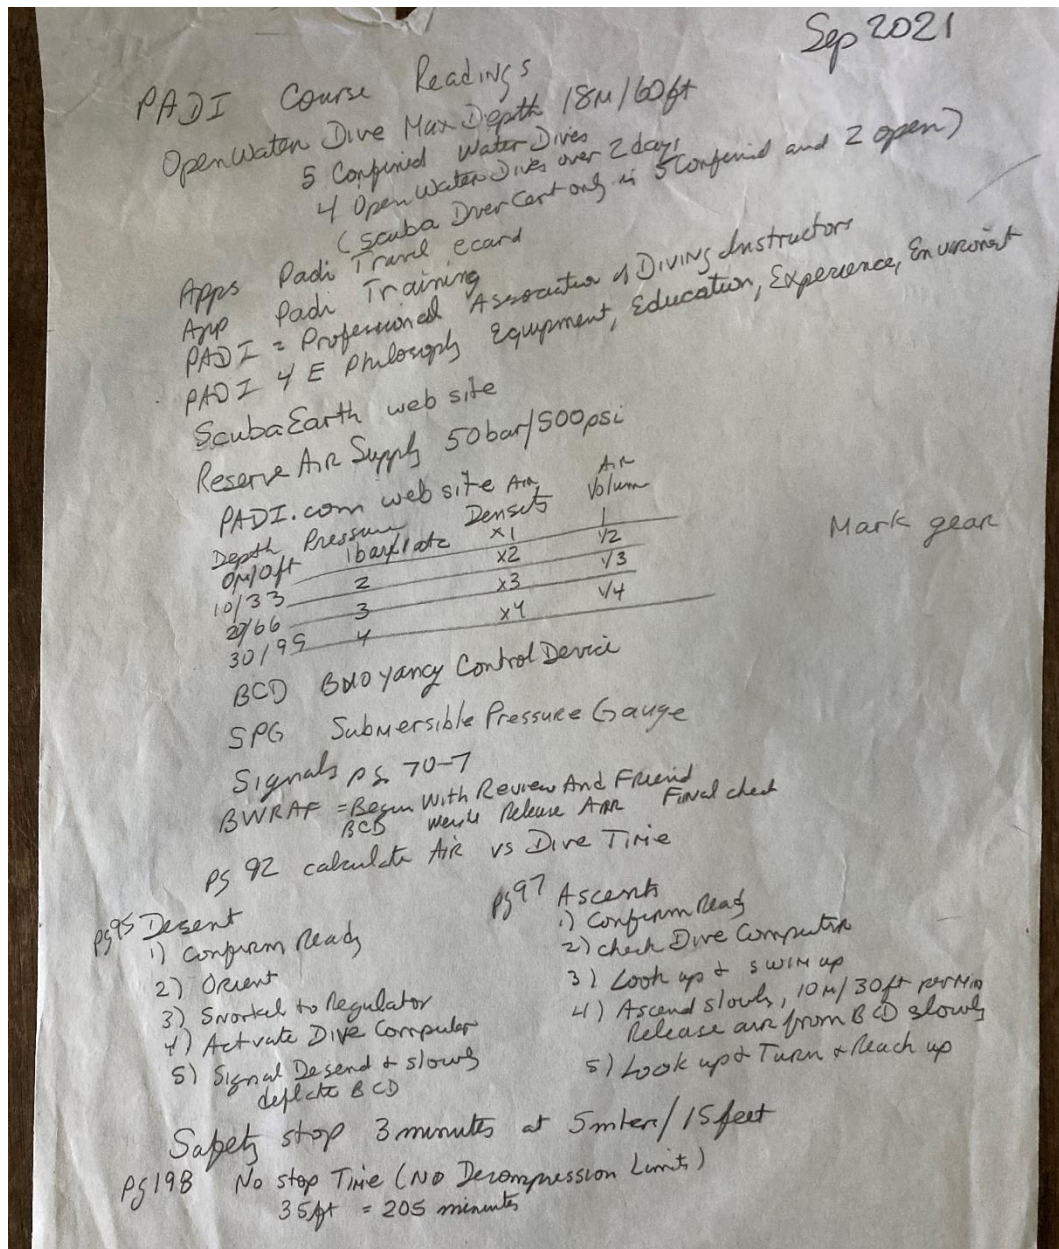 Sep 2021
PADI Course Readings
Open Water Dive Max Depth 18M/60ft
5 Confined Water Dives
4 Open Water Dives over 2 days
(Scuba Diver Cert only is 5 Confined and 2 open)
Apps Padi Travel ecard
App Padi Training
PADI = Professional Association of Diving Instructors
PADI 4 E Philosophy Equipment, Education, Experience, Environment
ScubaEarth web site
Reserve Air Supply 50bar/500psi
PADI.com web site
Depth Pressure Air Density Air Volum
0M/0ft 1bar/1atc x1 1
10/33 2 x2 1/2
20/66 3 x3 1/3
30/99 4 x4 1/4
Mark gear
BCD Buoyancy Control Device
SPG Submersible Pressure Gauge
Signals pg 70-7
BWRAF = Begin With Review And Friend
BCD Weight Release Air Final check
pg 92 calculate Air vs Dive Time
pg95 Desent
1) Confirm Ready
2) Orient
3) Snorkel to Regulator
4) Activate Dive Computer
5) Signal Desend & slowly
deflate BCD
pg97 Ascents
1) Confirm Ready
2) check Dive Computer
3) Look up & swim up
4) Ascend slowly, 10M/30ft per Min
Release air from BCD slowly
5) Look up & Turn & Reach up
Safety stop 3 minutes at 5 mters/15 feet
pg198 No stop Time (No Decompression Limits)
35ft = 205 minutes